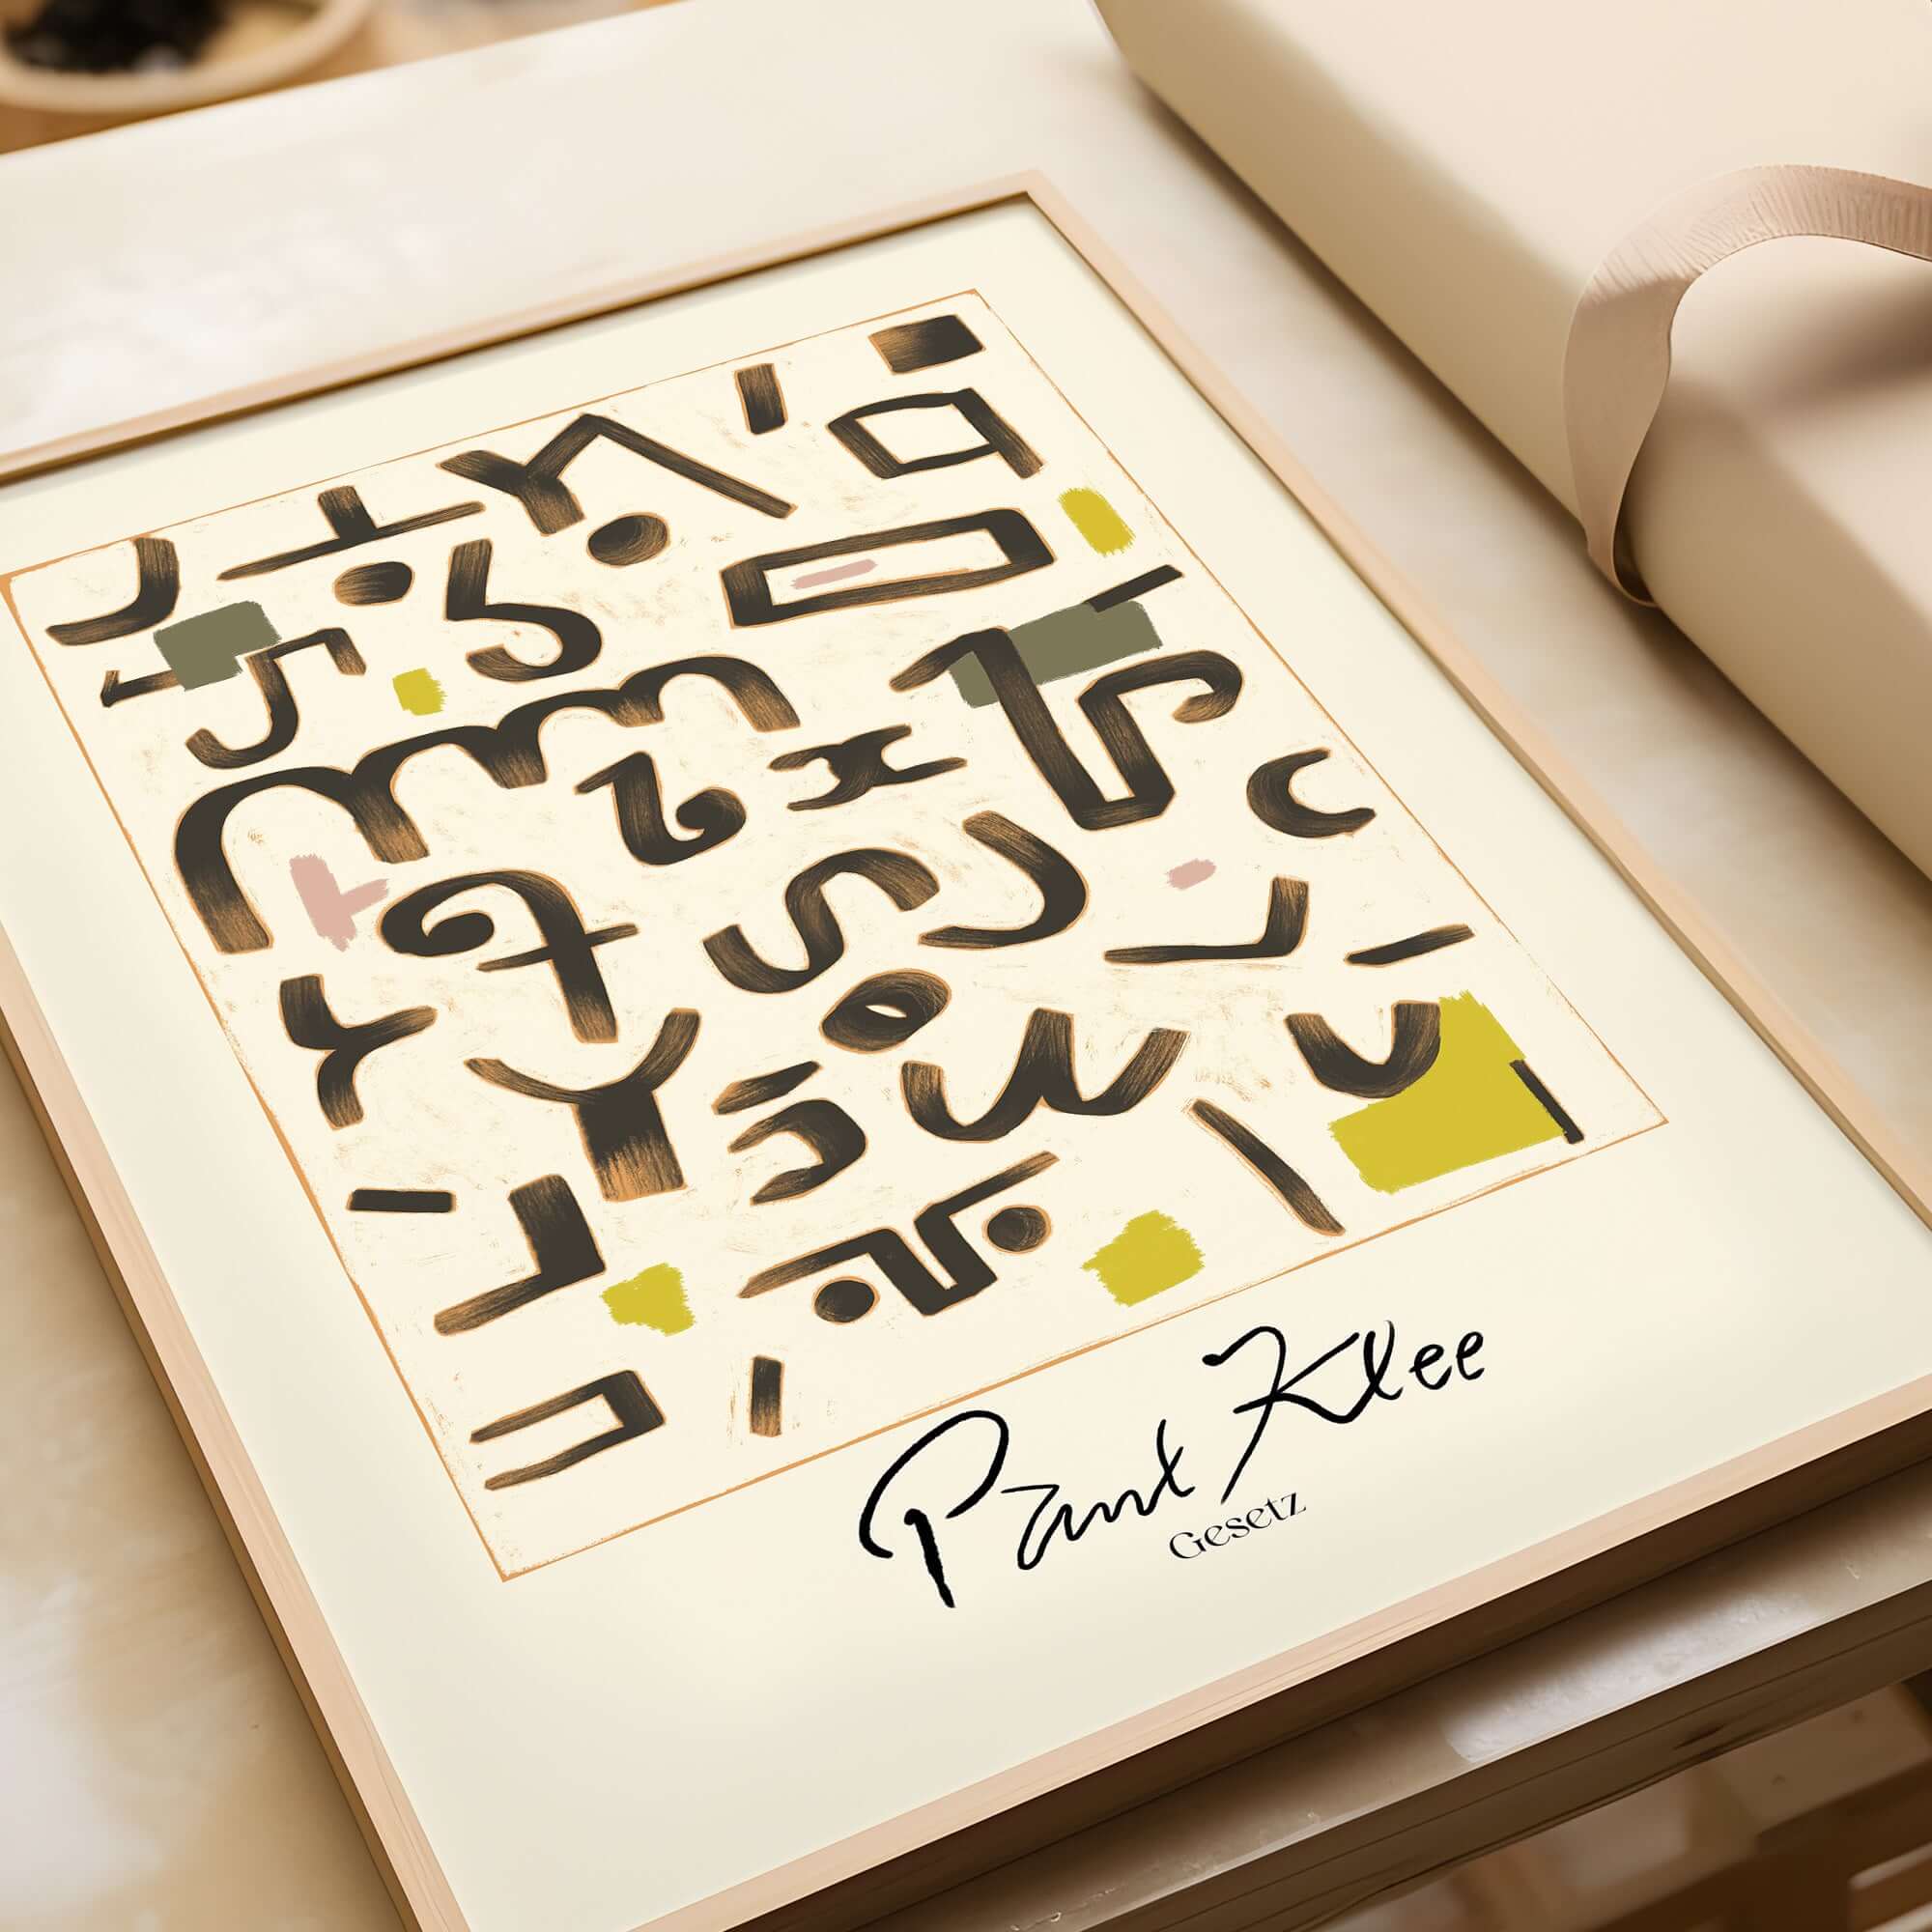 Paul Klee
Gesetz